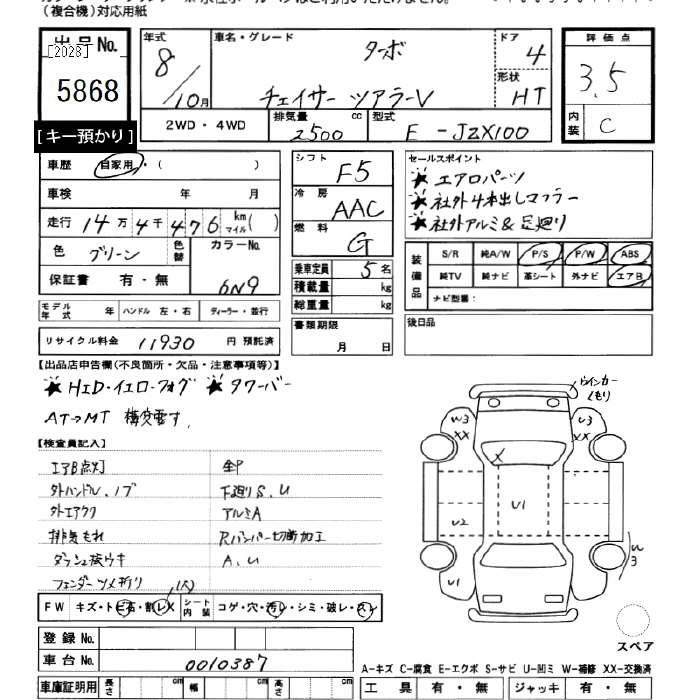 （複合機）対応用紙
出品No.
[2028]
5868
[キー預かり]
年式
8/10月
車名・グレード
ターボ
チェイサー ツアラーV
ドア
4
形状
HT
2WD・4WD
排気量
2500 cc
型式
E - JZX100
評価点
3.5
内装
C
車歴 自家用・（ ）
車検 年 月
走行 14万4千476 km マイル（ ）
色 グリーン 色替 カラーNo. 6N9
保証書 有・無
モデル年式 年 ハンドル 左・右 ディーラー・並行
リサイクル料金 11930 円 預託済
シフト F5
冷房 AAC
燃料 G
乗車定員 5名
積載量 kg
総重量 kg
書類期限
月 日
セールスポイント
★ エアロパーツ
★ 社外4本出しマフラー
★ 社外アルミ&足廻り
装備品
S/R 純A/W P/S P/W ABS
純TV 純ナビ 革シート 外ナビ エアB
ナビ型番：
後日品
【出品店申告欄(不良箇所・欠品・注意事項等)】
★ HID・イエローフォグ ★ タワーバー
AT→MT 構変電す.
【検査員記入】
エアB点灯
外ハンドル、ノブ
外エアクリ
排気もれ
ダッシュ抜ウキ
フェンダーツメ折リ
下廻りS、U
アルミA
Rバンパー切断加工
A、U
FW キズ・トビ石・割レX シート内装 コゲ・穴・汚レ・シミ・破レ・スレ
登録No.
車台No. 0010387
車庫証明用 長さ cm 幅 cm 高さ cm
ウインカー
くもり
W3
XX
U3
XX
X
U1
U2
U1
W3
スペア
A-キズ C-腐食 E-エクボ S-サビ U-凹ミ W-補修 XX-交換済
工具 有・無 ジャッキ 有・無